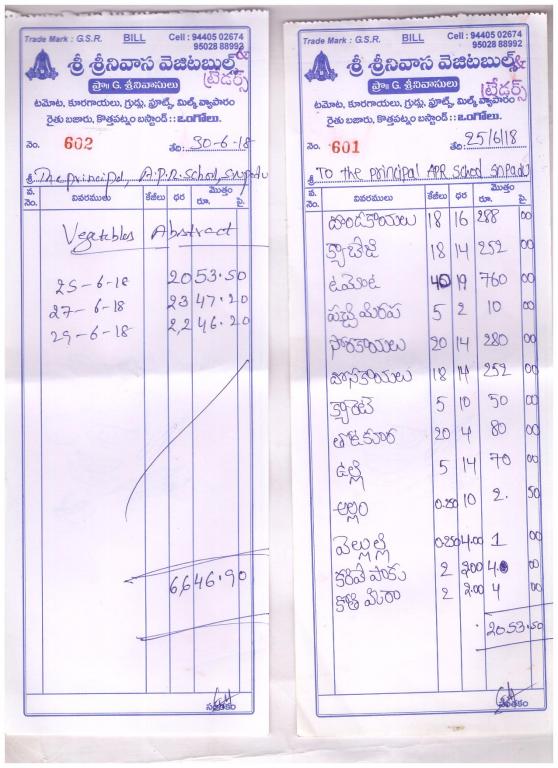 Trade Mark : G.S.R. BILL Cell : 94405 02674
95028 88992
శ్రీ శ్రీనివాస వెజిటబుల్స్ &
ట్రేడర్స్
ప్రొ॥ G. శ్రీనివాసులు
టమోట, కూరగాయలు, గ్రుడ్లు, ఫ్రూట్స్, మిల్క్ వ్యాపారం
రైతు బజారు, కొత్తపట్నం బస్టాండ్ :: ఒంగోలు.
నెం. 602 తేది: 30-6-18
శ్రీ The principal, A.P.R. School,
వ. నెం. వివరములు కేజీలు ధర మొత్తం రూ. పై.
Vegetables Abstract
25-6-18 2053.50
27-6-18 2347.20
29-6-18 2,246.20
6,646.90
సంతకం
Trade Mark : G.S.R. BILL Cell : 94405 02674
95028 88992
శ్రీ శ్రీనివాస వెజిటబుల్స్ &
ట్రేడర్స్
ప్రొ॥ G. శ్రీనివాసులు
టమోట, కూరగాయలు, గ్రుడ్లు, ఫ్రూట్స్, మిల్క్ వ్యాపారం
రైతు బజారు, కొత్తపట్నం బస్టాండ్ :: ఒంగోలు.
నెం. 601 తేది: 25/6/18
శ్రీ To the principal APR school
వ. నెం. వివరములు కేజీలు ధర మొత్తం రూ. పై.
దొండకాయలు 18 16 288 00
క్యాబేజి 18 14 252 00
టమోట 40 19 760 00
పచ్చిమిరప 5 2 10 00
సోరకాయలు 20 14 280 00
దోసకాయలు 18 14 252 00
క్యారెట్ 5 10 50 00
తోటకూర 20 4 80 00
ఉల్లి 5 14 70 00
అల్లం 0.250 10 2. 50
వెల్లుల్లి 0.250 4.00 1 00
కరివేపాకు 2 2.00 4 00
కొతిమీరా 2 2.00 4 00
2053.50
సంతకం